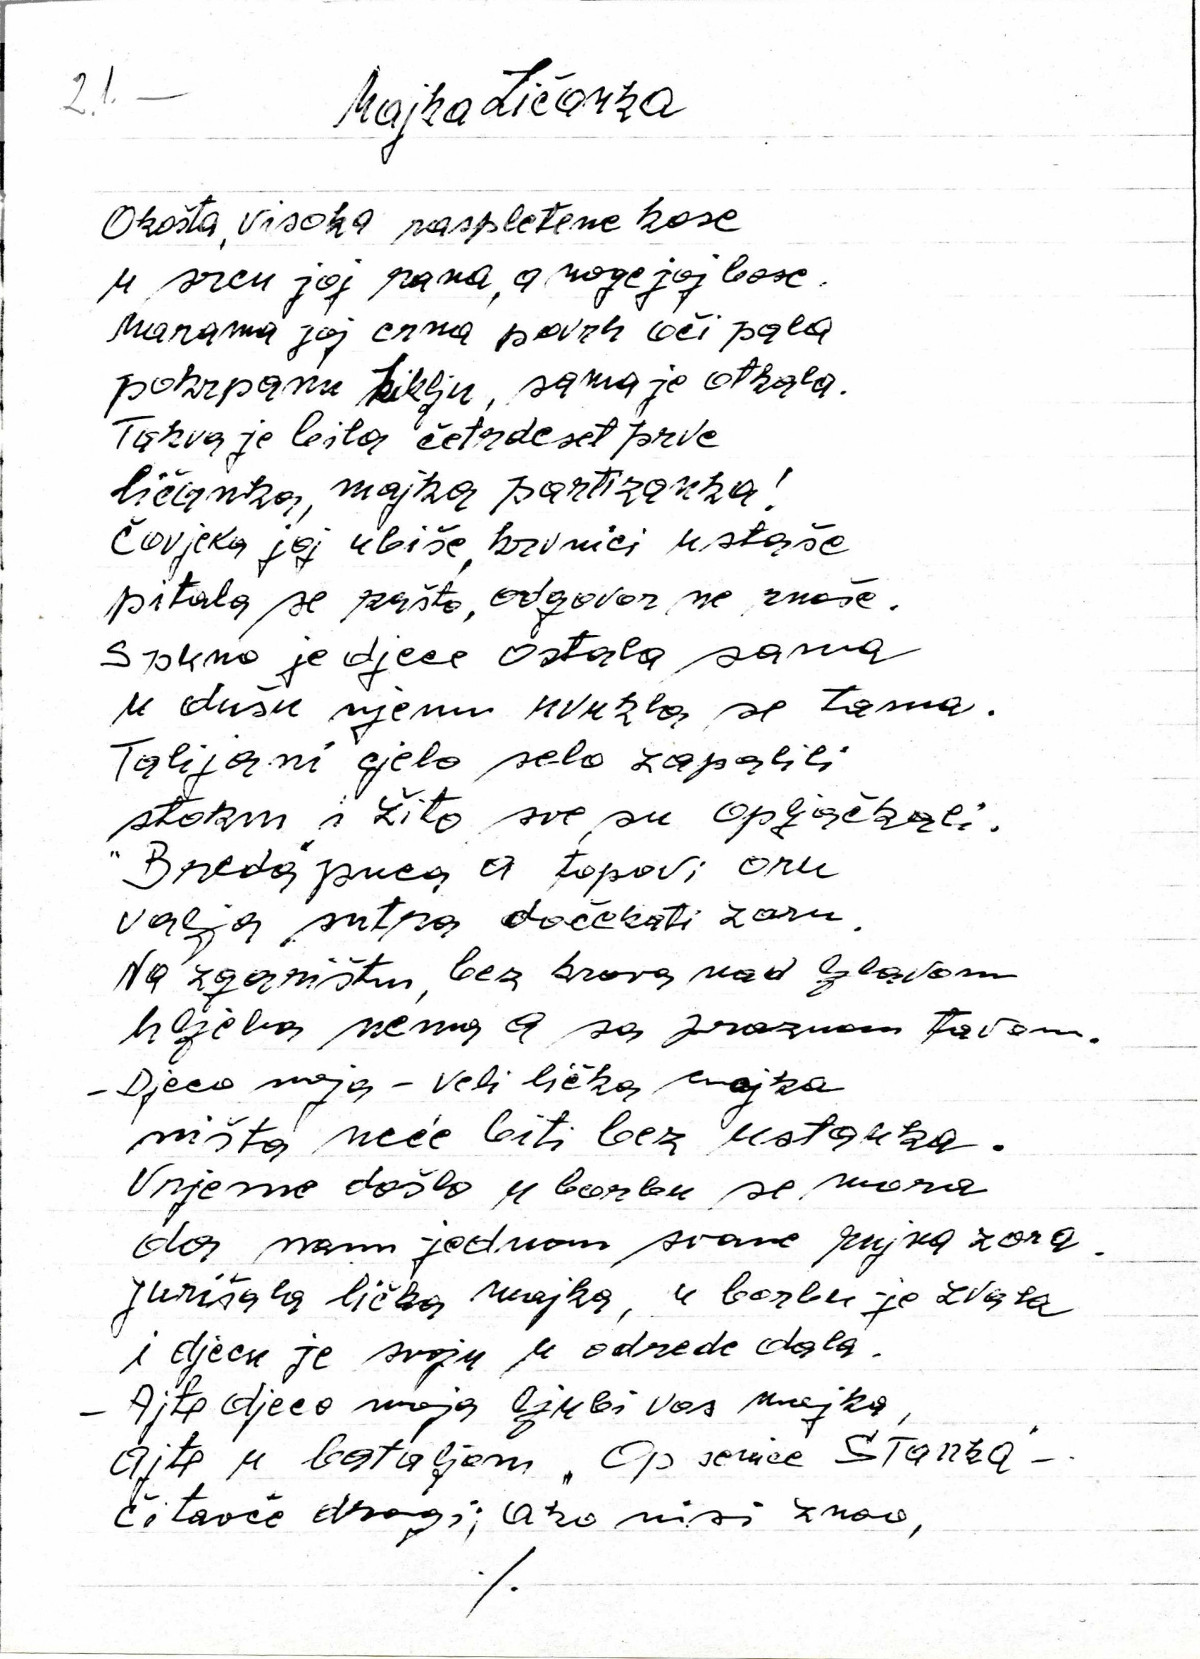 2.1. —
Majka Ličanka
Okošta, visoka raspletene kose
u srcu joj rana, a noge joj bose.
Marama joj crna povrh oči pala
pokrpanu kiklju, sama je otkala.
Takva je bila četrdeset prve
ličanka, majka partizanka!
Čovjeka joj ubiše, krvnici ustaše
pitala se zašto, odgovor ne znaše.
S puno je djece ostala sama
u dušu njenu uvukla se tama.
Talijani cjelo selo zapalili
stoku i žito sve su opljačkali.
"Breda" puca a topovi oru
valja sutra dočekati zoru.
Na zgarištu, bez krova nad glavom
hljeba nema a sa praznom tavom.
– Djeco moja – veli lička majka
ništa neće biti bez ustanka.
Vrijeme došlo u borbu se mora
da nam jednom svane rujna zora.
Jurišala lička majka, u borbu je zvala
i djecu je svoju u odrede dala.
– Ajte djeco moja ljubi vas majka,
ajte u bataljom „Opsenice Stanka" –.
Čitaoče dragi; ako nisi znao,
./.